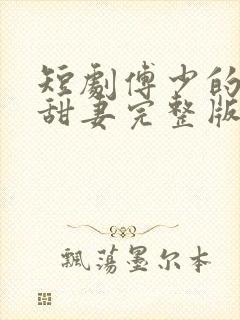 短劇傅少的
甜妻完整版
飄蕩墨尔本